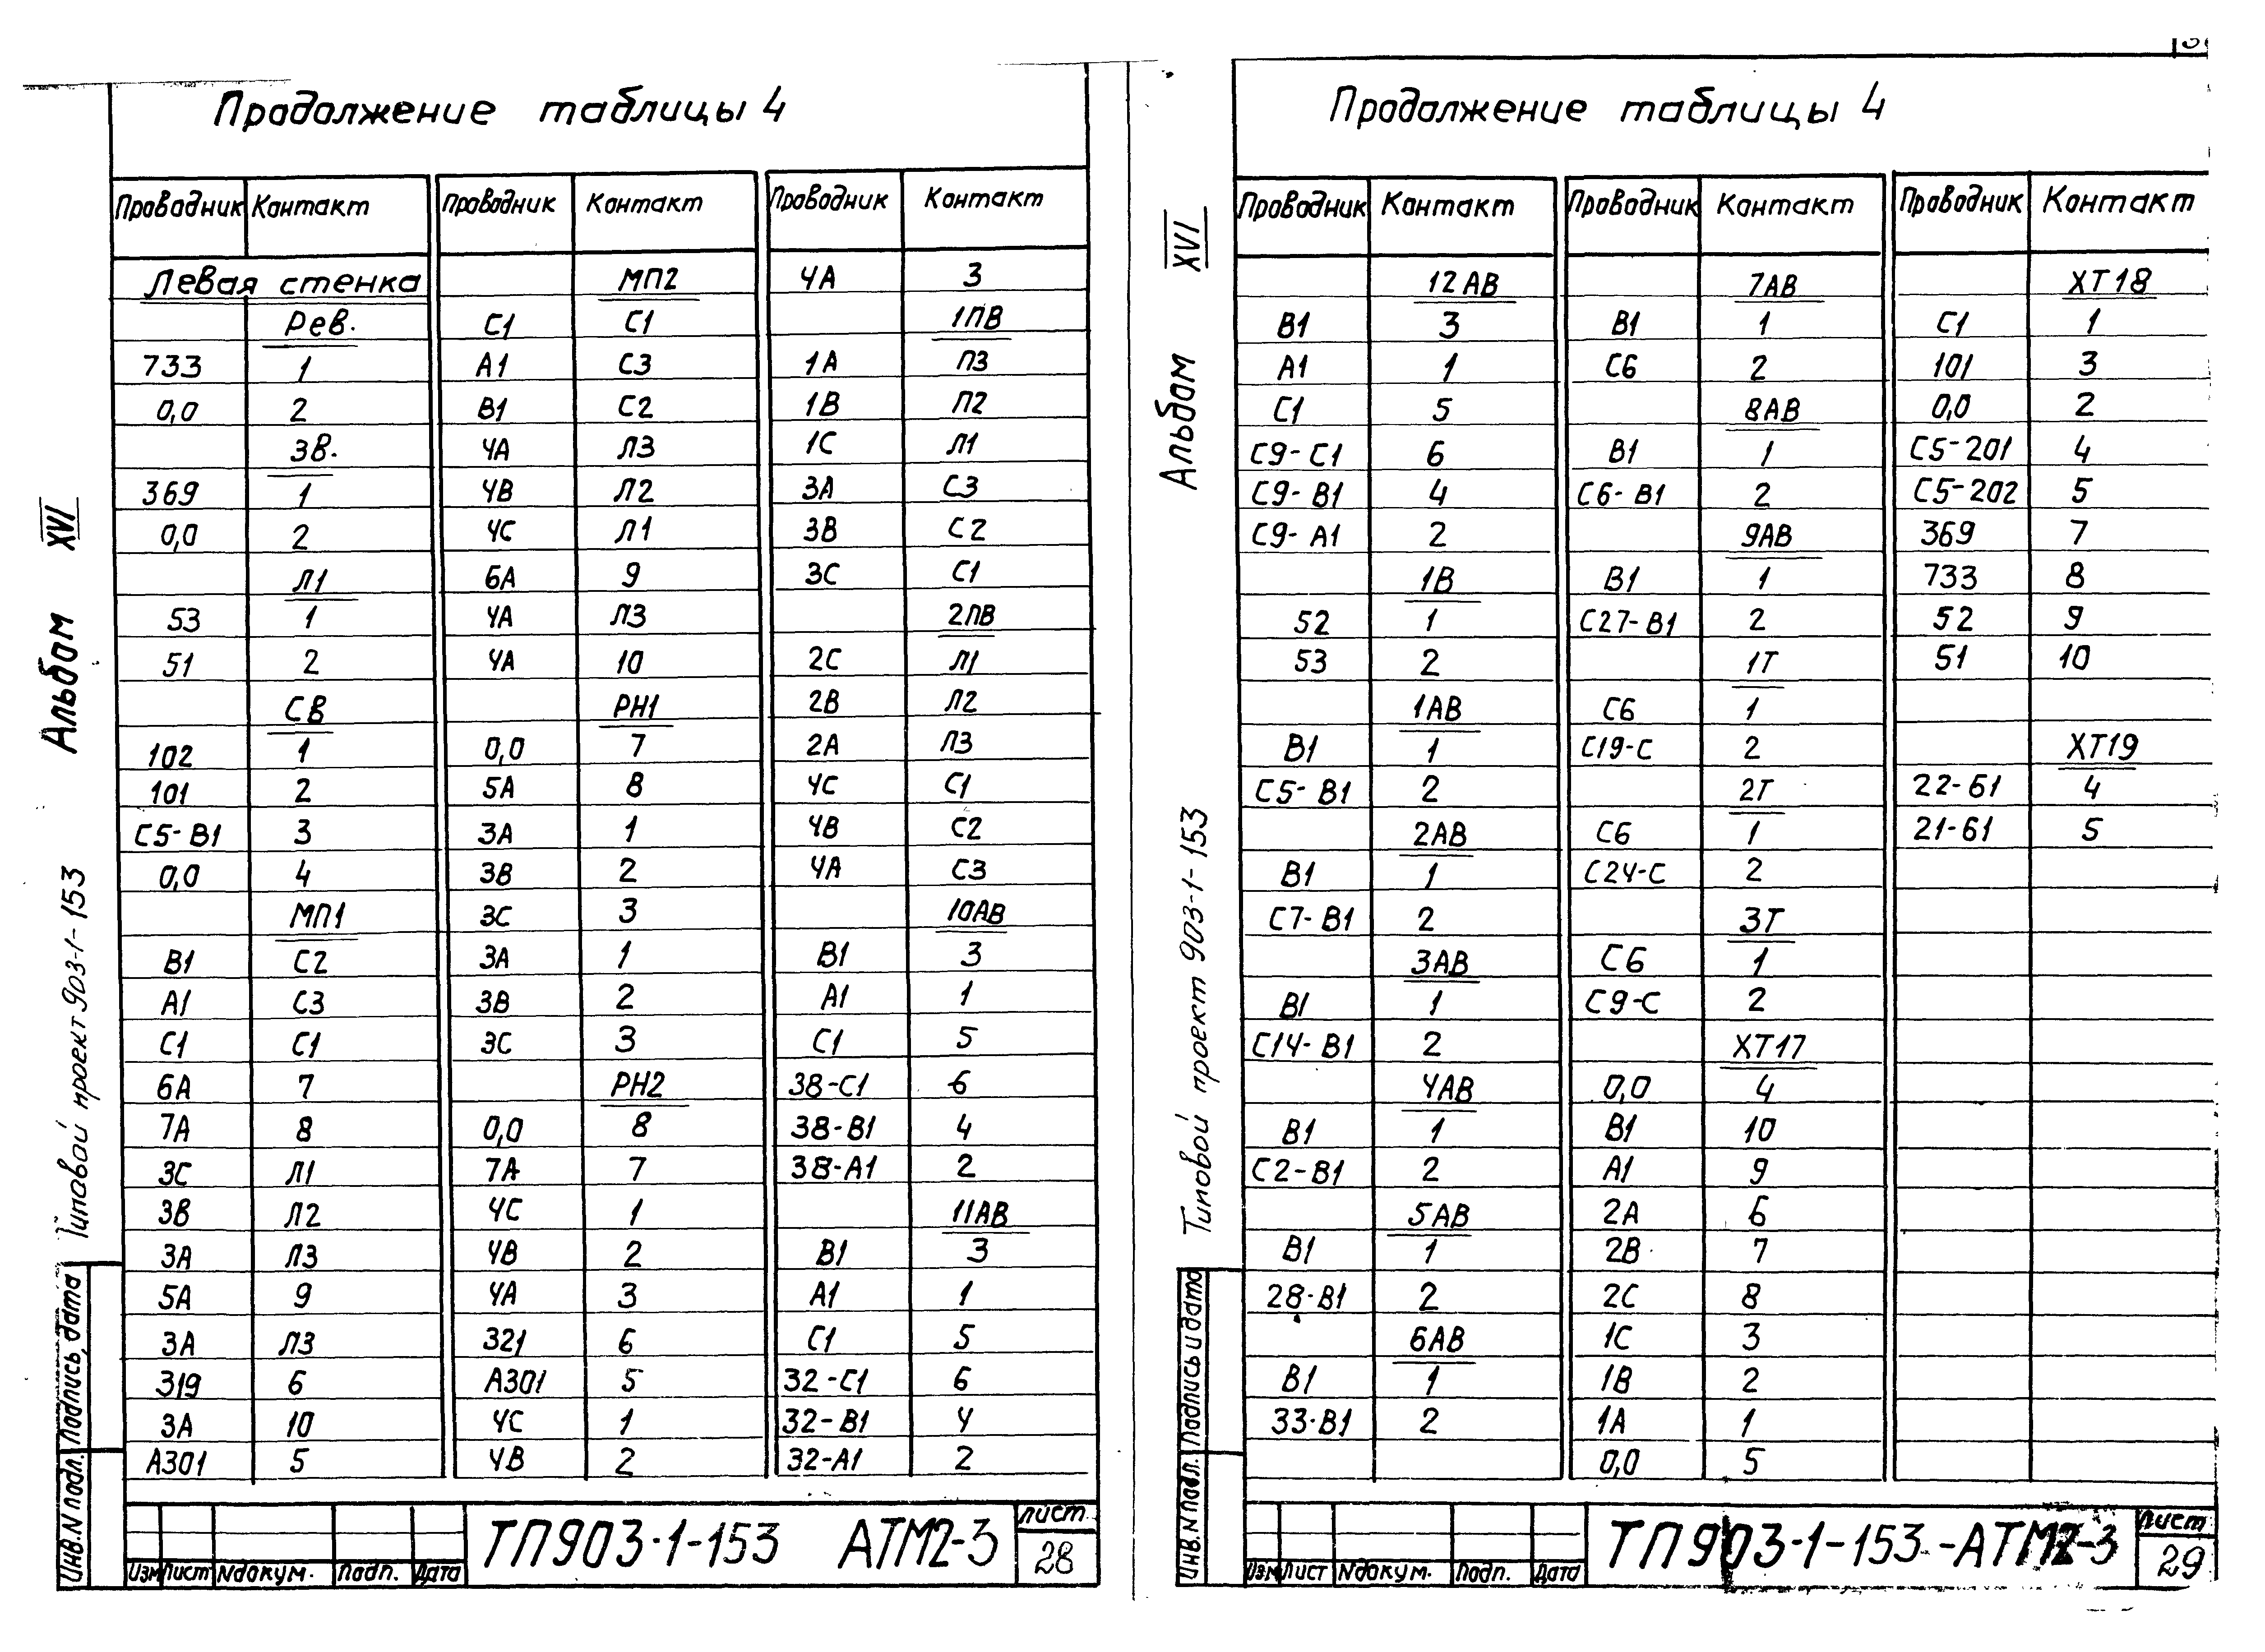 Продолжение таблицы 4
Проводник Контакт Проводник Контакт Проводник Контакт
Левая стенка МП2 4А 3
Рев. С1 С1 1ПВ
733 1 А1 С3 1А П3
0,0 2 В1 С2 1В П2
3В. 4А Л3 1С Л1
369 1 4В Л2 3А С3
0,0 2 4С Л1 3В С2
Л1 6А 9 3С С1
53 1 4А Л3 2ПВ
51 2 4А 10 2С Л1
СВ РН1 2В Л2
102 1 0,0 7 2А Л3
101 2 5А 8 4С С1
С5-В1 3 3А 1 4В С2
0,0 4 3В 2 4А С3
МП1 3С 3 10АВ
В1 С2 3А 1 В1 3
А1 С3 3В 2 А1 1
С1 С1 3С 3 С1 5
6А 7 РН2 38-С1 6
7А 8 0,0 8 38-В1 4
3С Л1 7А 7 38-А1 2
3В Л2 4С 1 11АВ
3А Л3 4В 2 В1 3
5А 9 4А 3 А1 1
3А Л3 321 6 С1 5
319 6 А301 5 32-С1 6
3А 10 4С 1 32-В1 4
А301 5 4В 2 32-А1 2
Альбом XVI
Типовой проект 903-1-153
Подпись, дата
Инв.N подл.
Изм Лист Nдокум. Подп. Дата
ТП903-1-153 АТМ2-3
Лист
28
Продолжение таблицы 4
Проводник Контакт Проводник Контакт Проводник Контакт
12АВ 7АВ ХТ18
В1 3 В1 1 С1 1
А1 1 С6 2 101 3
С1 5 8АВ 0,0 2
С9-С1 6 В1 1 С5-201 4
С9-В1 4 С6-В1 2 С5-202 5
С9-А1 2 9АВ 369 7
1В В1 1 733 8
52 1 С27-В1 2 52 9
53 2 1Т 51 10
1АВ С6 1
В1 1 С19-С 2 ХТ19
С5-В1 2 2Т 22-61 4
2АВ С6 1 21-61 5
В1 1 С24-С 2
С7-В1 2 3Т
3АВ С6 1
В1 1 С9-С 2
С14-В1 2 ХТ17
4АВ 0,0 4
В1 1 В1 10
С2-В1 2 А1 9
5АВ 2А 6
В1 1 2В 7
28-В1 2 2С 8
6АВ 1С 3
В1 1 1В 2
33-В1 2 1А 1
0,0 5
Альбом XVI
Типовой проект 903-1-153
Подпись и дата
Инв.N подл.
Изм Лист Nдокум. Подп. Дата
ТП903-1-153-АТМ2-3
Лист
29